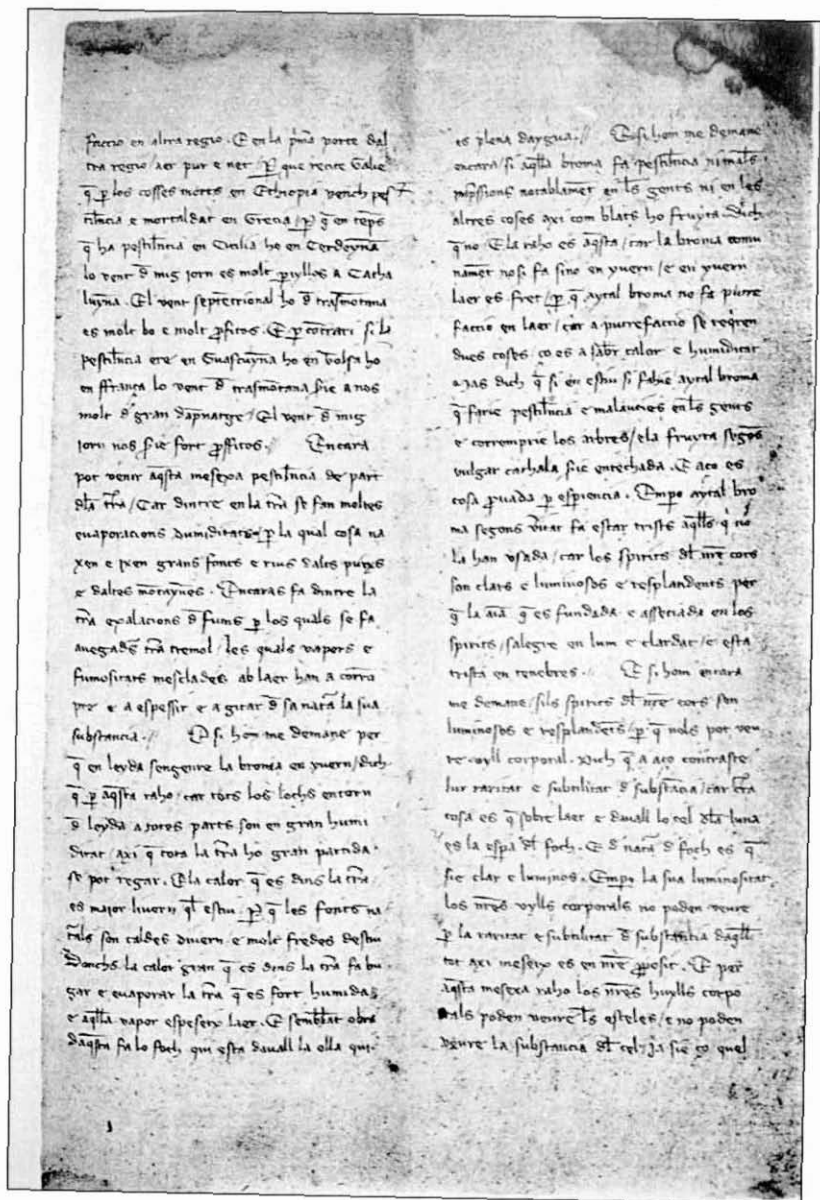 faccio en altra regio. E en la p̄ma porte dal
tra regio / aer pur e net / p̱ que recite Galie
q̄ p̱ los cosses morts en Ethiopia vench pes
til̄ncia e mortaldat en Grecia / p̱ q̄ en tēps
q̄ ha pestil̄ncia en Cicilia he en Cerdeyna
lo vent d̄ mig jorn es molt p̱yllos a Catha
luyna. El vent septētrional ho d̄ trasmōtana
es molt bo e molt ꝓfitos. E p̱ cōtrari si la
pestil̄ncia ere en Guascuyna ho en
en ffrança lo vent d̄ trasmōtana sie a nos
molt d̄ gran dāpnatge / El vent d̄ mig
jorn nos sie fort ꝓffitos. Encara
pot venir aq̄sta mesexa pestil̄ncia de part
dla t̄ra / Car dintre en la t̄ra se fan moltes
euaporacions dumiditats p̱ la qual cosa na
xen e ixen grans fonts e rius dalts puixs
e daltes mōtaynes. Encaras fa dintre la
t̄ra exalacions d̄ fums p̱ los quals se fa
auegad̄s t̄ra tremol / les quals vapors e
fumositats mesclades ab laer han a corrō
pre e a espessir e a gitar d̄ sa nat̄a la sua
substancia. // E si hom me demane per
q̄ en leyda sengenre la broma en yvern / dich
q̄ p̱ aq̄sta raho / car tots los lochs entorn
d̄ leyda a totes parts son en gran humi
ditat / axi q̄ tota la t̄ra ho gran partida
se pot regar. E la calor q̄ es dins la t̄ra
es maior livern q̄l estiu p̱ q̄ les fonts na
t̄als son caldes divern e molt fredes destiu
Donchs la calor gran q̄ es dins la t̄ra fa bu
gar e euaporar la t̄ra q̄ es fort humida
e aq̄lla vapor espeseix laer. E semblāt obra
daq̄sta fa lo foch qui esta dauall la olla qui
es plena daygua. // E si hom me demane
encara / si aq̄lla broma fa pestil̄ncia ni mals
īnp̄ssions notablamēt en l̄s gents ni en les
altres coses axi com blats ho fruyta. Dich
q̄ no. E la raho es aq̄sta / car la broma comu
namēt nos fa sino en yvern / e en yvern
laer es fret / p̱ q̄ aytal broma no fa putre
faccio en laer / car a putrefaccio se req̄ren
dues coses / ço es a sab̄r calor e humiditat
Mas dich q̄ si en estiu si fahie aytal broma
q̄ farie pestil̄ncia e malauties en l̄s gents
e corremprie los arbres / e la fruyta segōs
vulgar cathala sie entechada. E aço es
cosa ꝓuada p̱ esp̱iencia. Emp̱o aytal bro
ma segons v̄itat fa estar trists aq̄lls q̄ nō
la han vsada / car los spirits dl n̄re cors
son clars e luminosos e resplandents per
q̄ la aīa q̄ es fundada e assetiada en los
spirits / salegre en lum e clardat / e esta
trista en tenebres. // E si hom encara
me demane / sils spirits dl n̄re cors son
luminosos e resplandēts / p̱ q̄ nols pot veu
re vyll corporal. Dich q̄ a aço contraste
lur raritat e subtilitat d̄ substācia / car c̄ta
cosa es q̄ sobre laer e dauall lo cel dla luna
es la esp̱a dl foch. E d̄ nat̄a d̄ foch es q̄
sie clar e luminos. Emp̱o la sua luminositat
los n̄res vylls corporals no poden veure
p̱ la raritat e subtilitat d̄ substantia daq̄ll
tot axi meseix es en n̄re ꝓposit. E per
aq̄sta mesexa raho los n̄res huylls corpo
rals poden veure l̄s esteles / e no poden
veure la substancia dl cel / ja sie ço quel